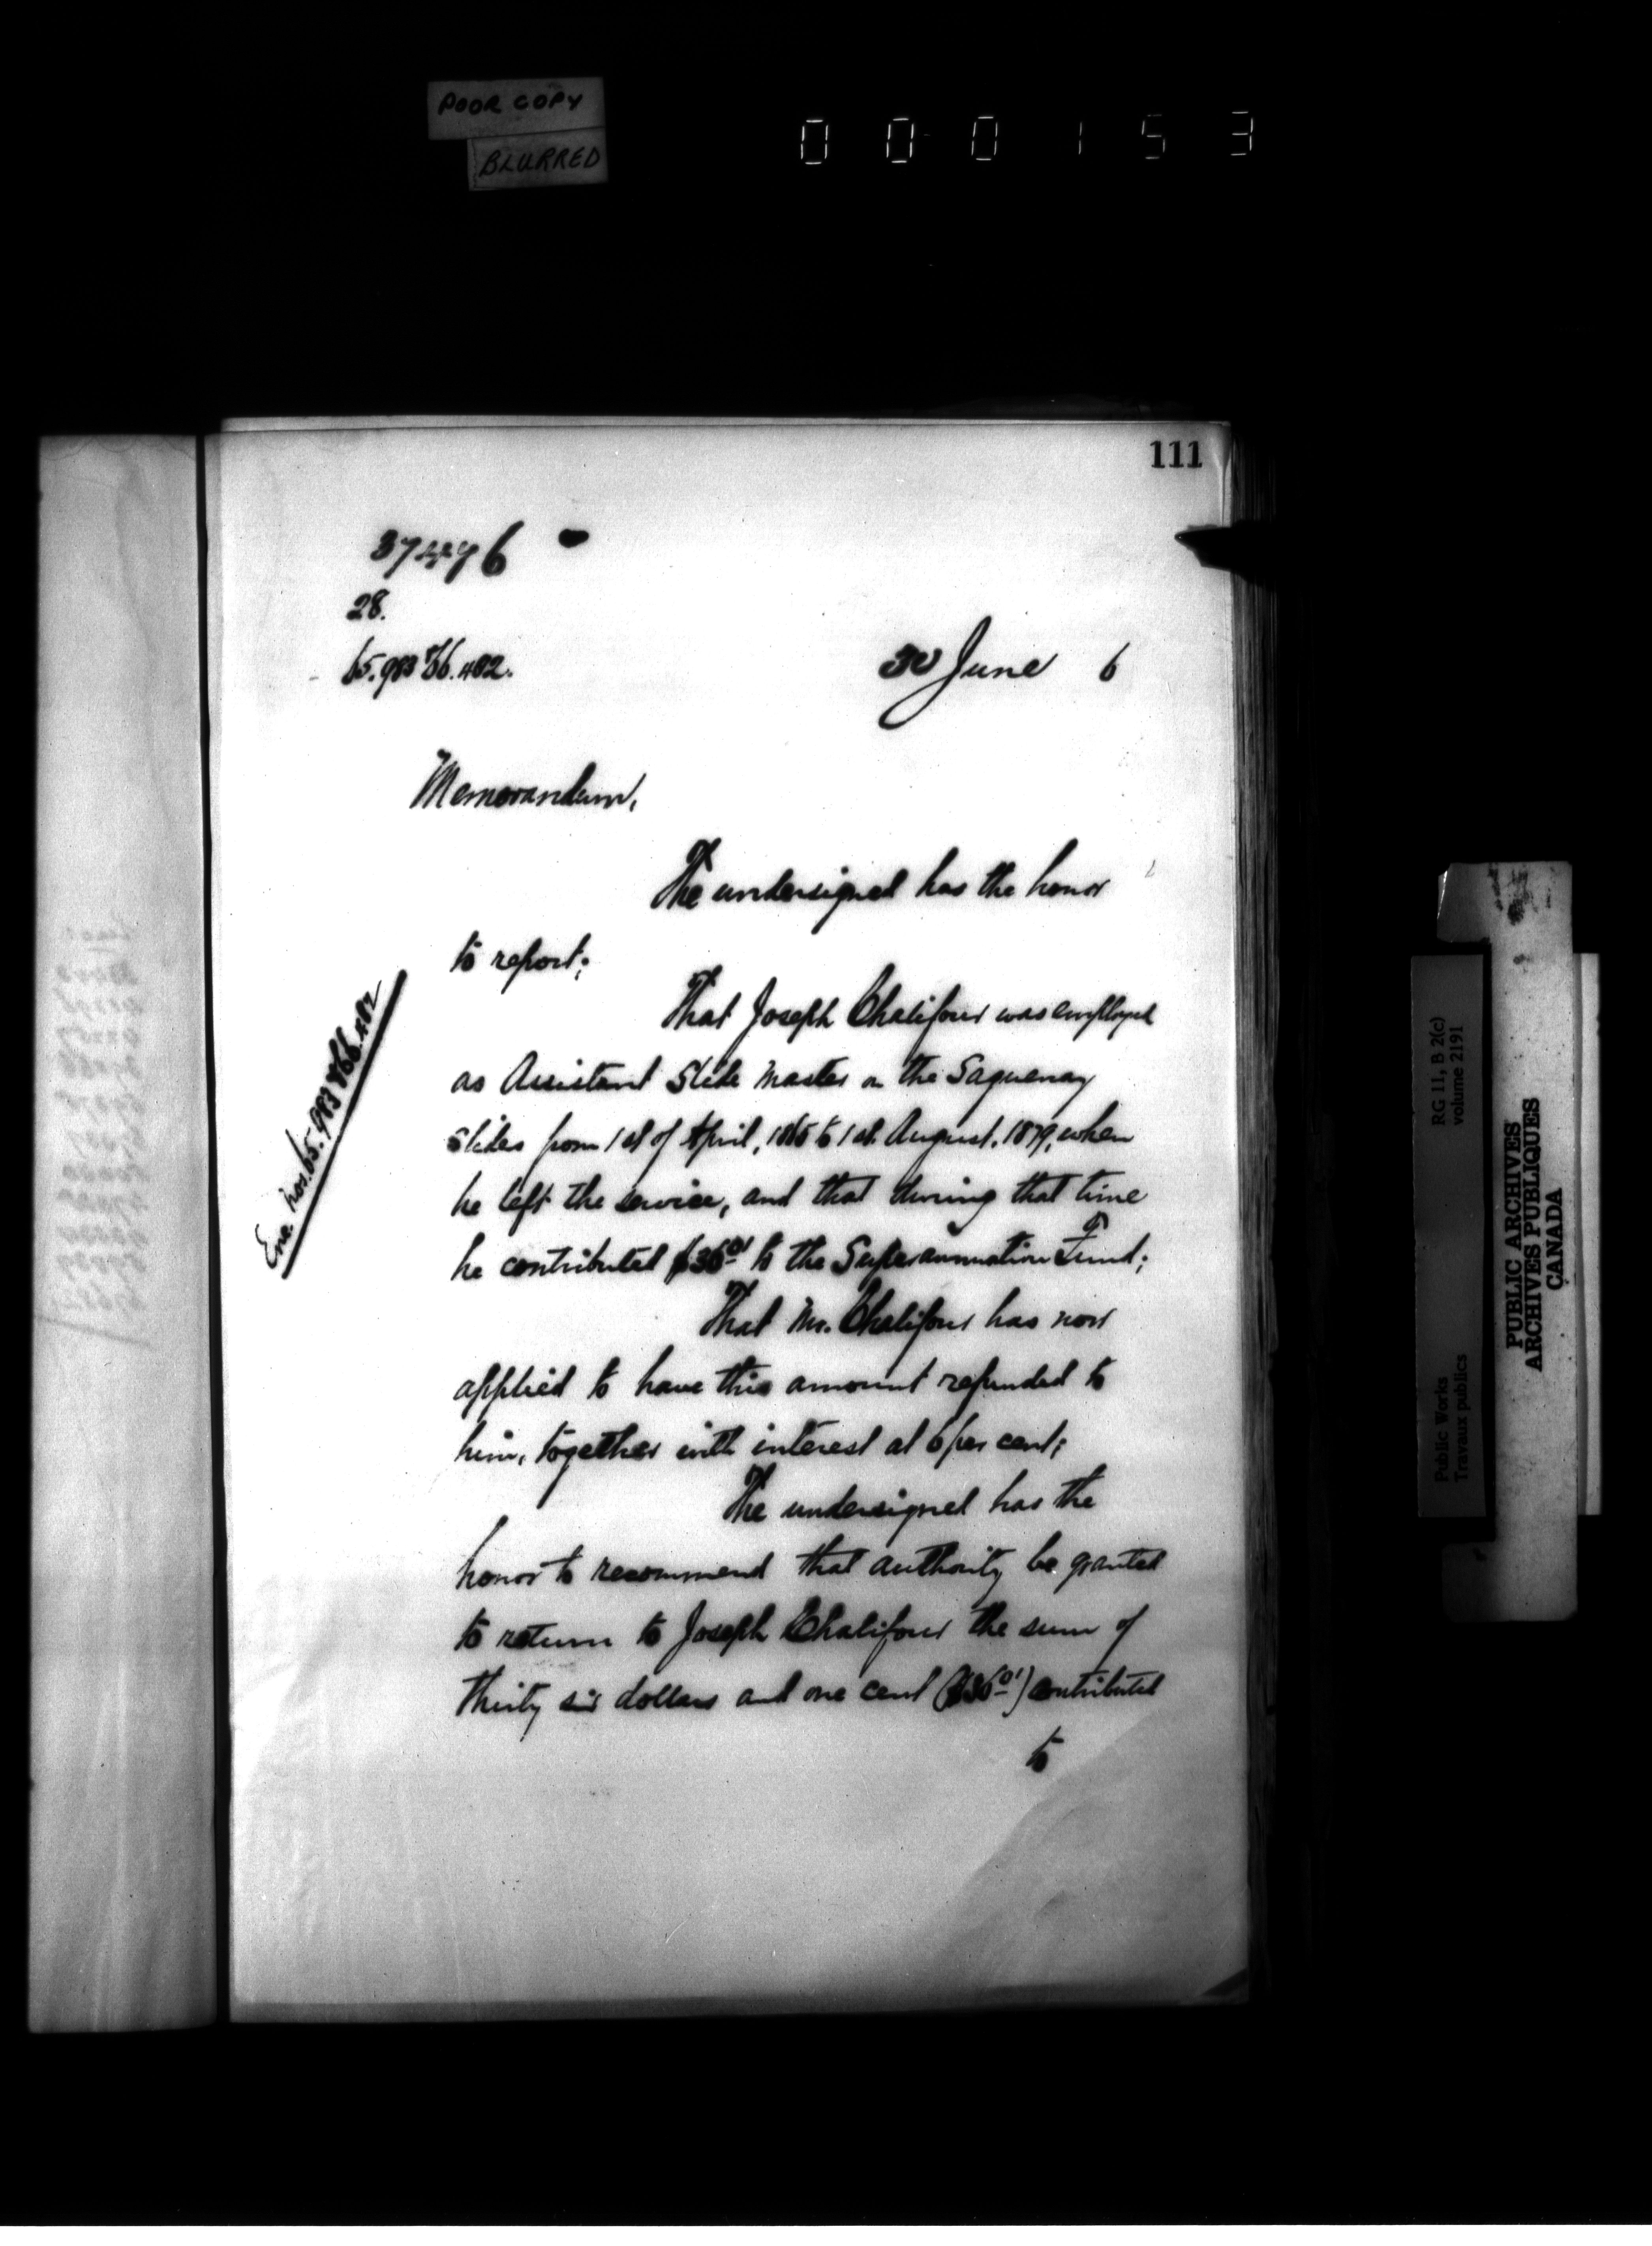 POOR COPY
BLURRED
0 0 0 1 5 3
111
28.
65.983 & 66.482.
30 June 6
Memorandum,
The undersigned has the honor
to report;
That Joseph Chalifour was employed
as Assistant Slide Master on the Saguenay
Slides from 1st of April, 1865 to 1st August, 1879, when
he left the service, and that during that time
he contributed $36.01 to the Superannuation Fund;
That Mr. Chalifour has now
applied to have this amount refunded to
him, together with interest at 6 per cent;
The undersigned has the
honor to recommend that authority be granted
to return to Joseph Chalifour the sum of
thirty six dollars and one cent ($36.01) contributed
to
Enc. Nos. 65.983 & 66.482
Public Works
Travaux publics
RG 11, B 2(c)
volume 2191
PUBLIC ARCHIVES
ARCHIVES PUBLIQUES
CANADA